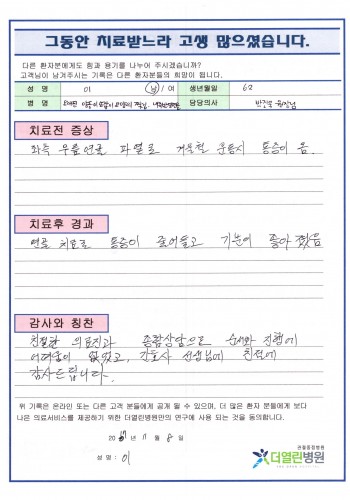 그동안 치료받느라 고생 많으셨습니다.
다른 환자분에게도 힘과 용기를 나누어 주시겠습니까?
고객님이 남겨주시는 기록은 다른 환자분들의 희망이 됩니다.
성 명 이 남 / 여 생년월일 62
병 명 담당의사
치료전 증상
좌측 무릎연골 파열로 겨울철 운동시 통증이 옴.
치료후 경과
연골 치료로 통증이 줄어들고 기분이 좋아졌음
감사와 칭찬
친절한 의료진과 종합상담으로 순서와 진행에
어려움이 없었고, 간호사 선생님에 친절에
감사드립니다.
위 기록은 온라인 또는 다른 고객 분들에게 공개 될 수 있으며, 더 많은 환자 분들에게 보다
나은 의료서비스를 제공하기 위한 더열린병원만의 연구에 사용 되는 것을 동의합니다.
20 년 11 월 8 일
성 명 : 이
관절중점병원
더열린병원